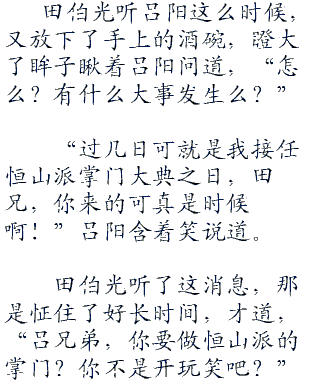 田伯光听吕阳这么时候，
又放下了手上的酒碗，瞪大
了眸子瞅着吕阳问道，“怎
么？有什么大事发生么？”
“过几日可就是我接任
恒山派掌门大典之日，田
兄，你来的可真是时候
啊！”吕阳含着笑说道。
田伯光听了这消息，那
是怔住了好长时间，才道，
“吕兄弟，你要做恒山派的
掌门？你不是开玩笑吧？”